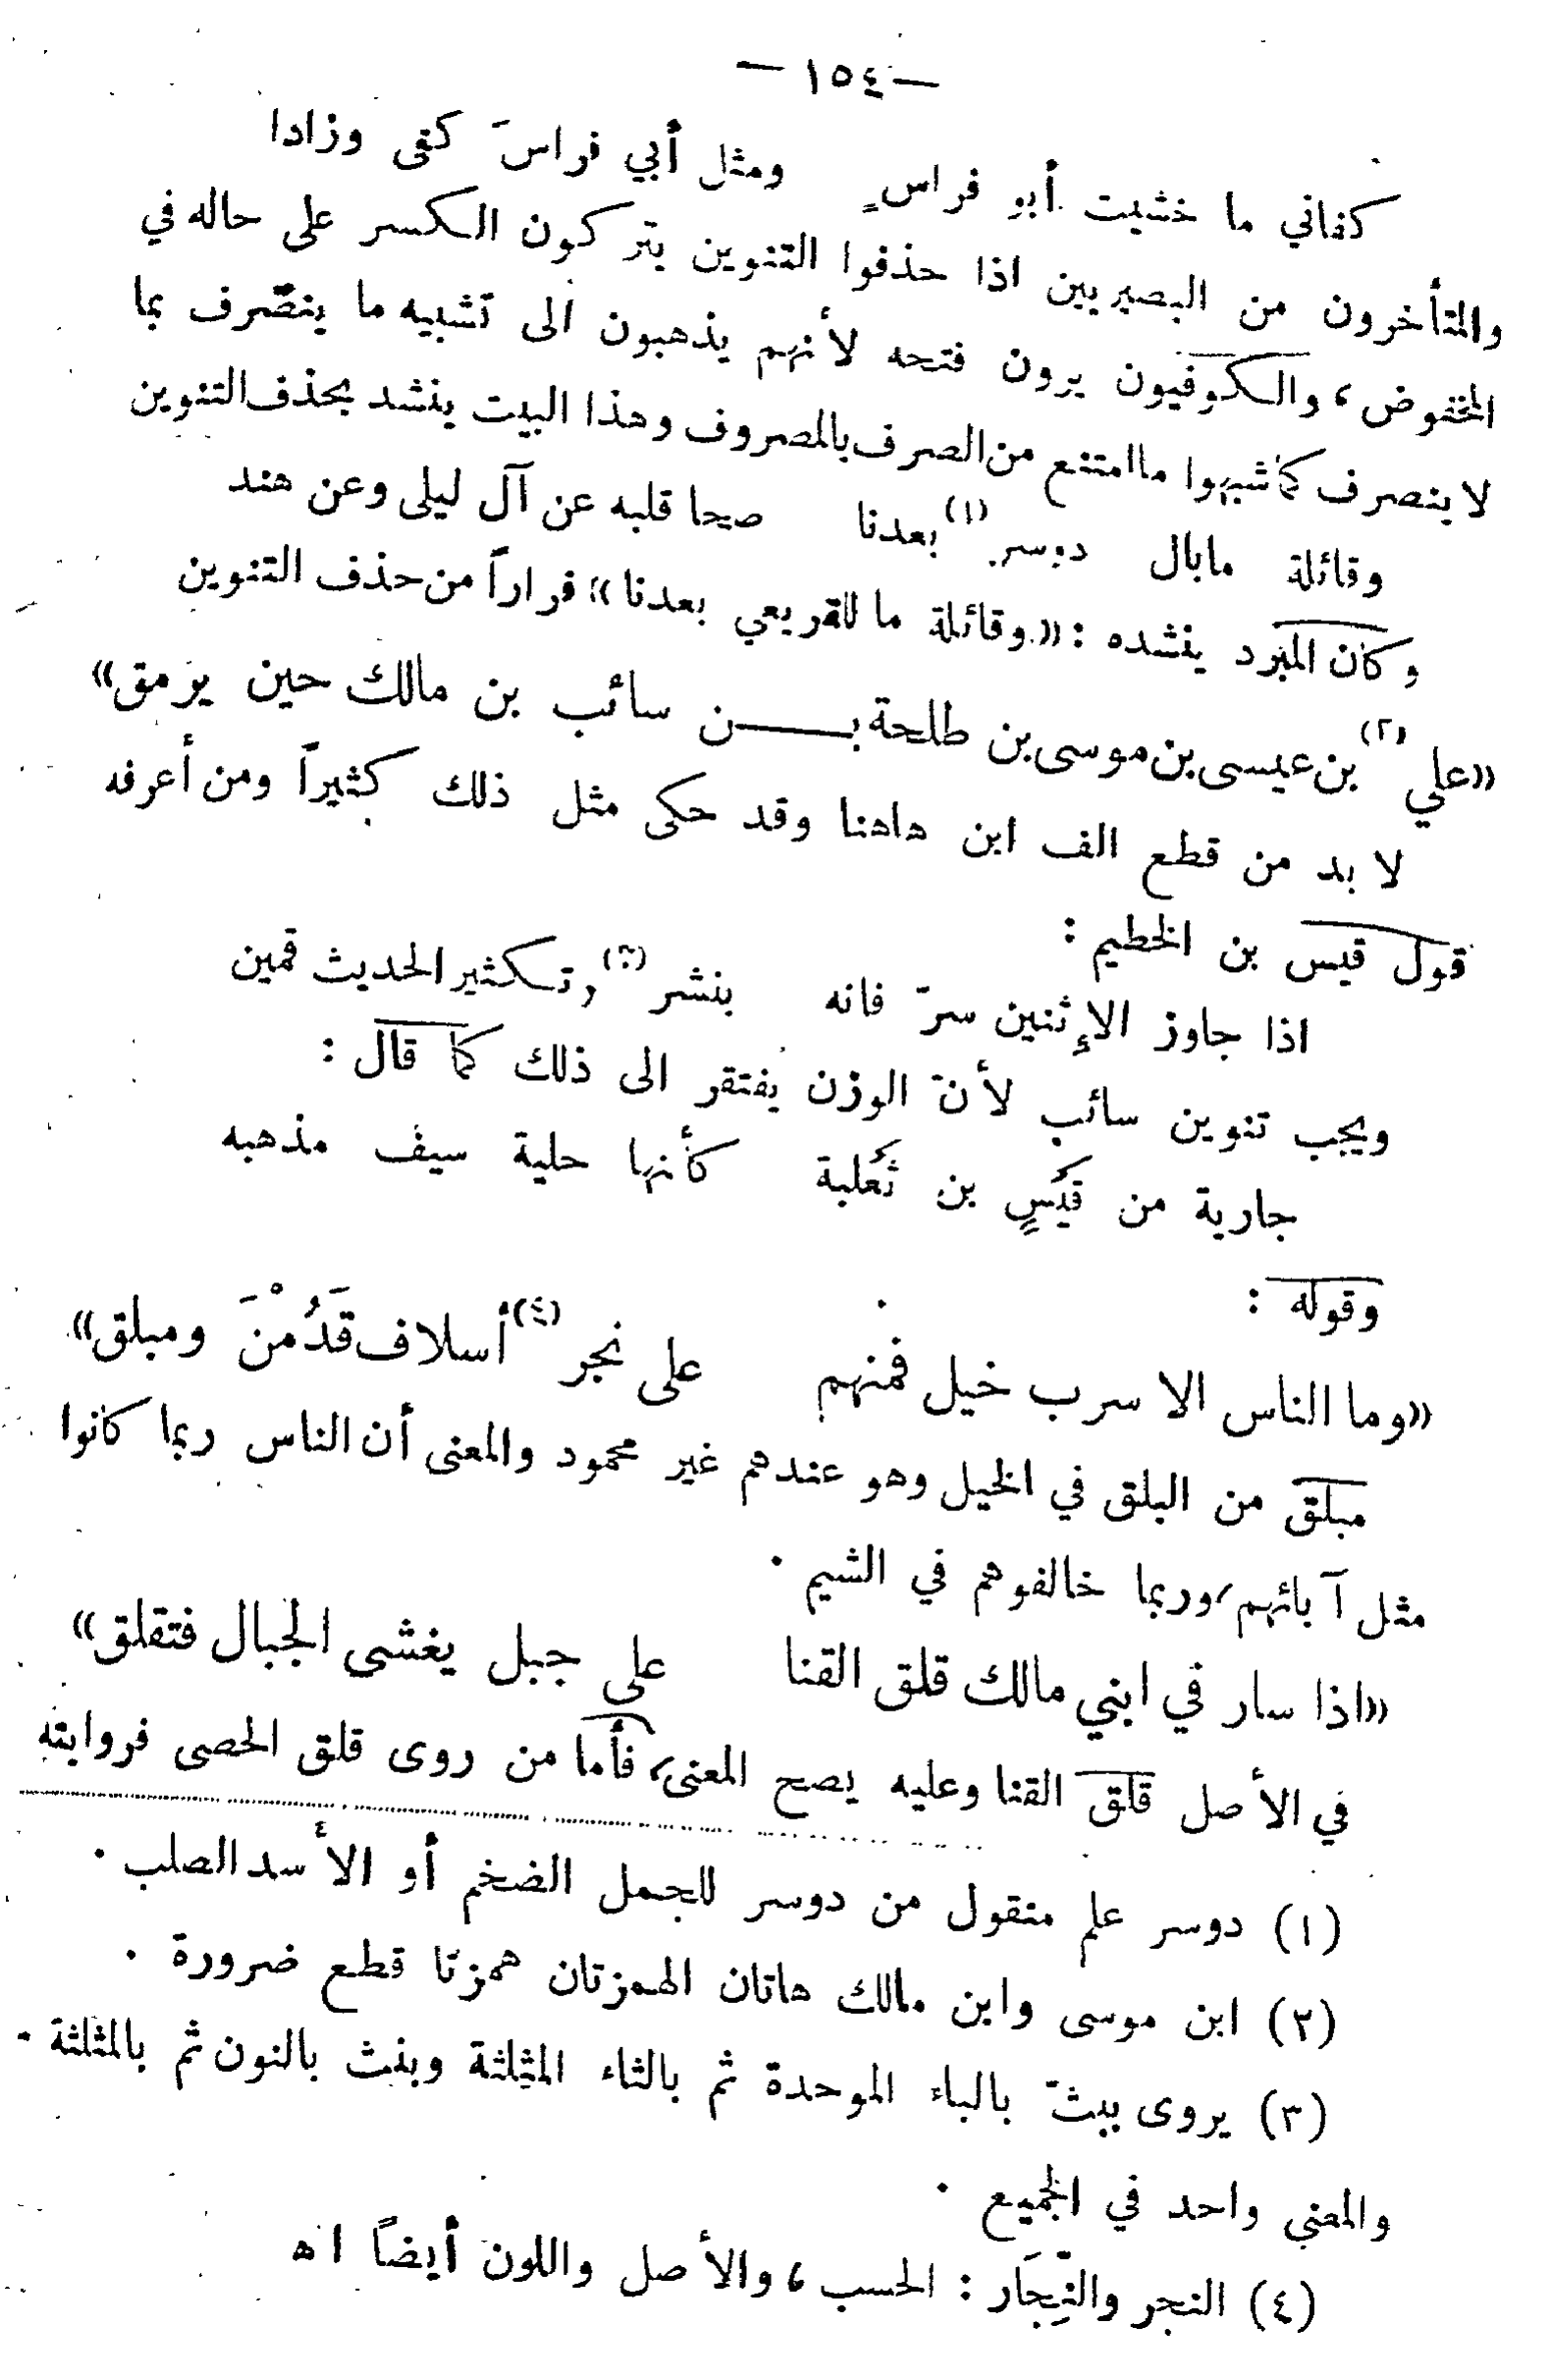 — ١٥٤ —
كفاني ما خشيت أبو فراسٍ ومثل أبي فراسَ كفى وزادا
والمتأخرون من البصريين اذا حذفوا التنوين يتركون الكسر على حاله في
المخفوض، والكوفيون يرون فتحه لأنهم يذهبون الى تشبيه ما ينصرف بما
لا ينصرف كما شبهوا ما امتنع من الصرف بالمصروف وهذا البيت ينشد بحذف التنوين
وقائلة مابال دوسر (١) بعدنا صحا قلبه عن آل ليلى وعن هند
وكان المبرد ينشده : «وقائلة ما للقريعي بعدنا» فراراً من حذف التنوين
«علي (٢) بن عيسى بن موسى بن طلحة بـــن سائب بن مالك حين يرمق»
لا بد من قطع الف ابن هاهنا وقد حكى مثل ذلك كثيراً ومن أعرفه
قول قيس بن الخطيم :
اذا جاوز الإثنين سرّ فانه بنشر (٣) وتكثير الحديث قمين
ويجب تنوين سائب لأنّ الوزن يفتقر الى ذلك كما قال :
جارية من قَيْسٍ بن ثَعْلبة كأنها حلية سيف مذهبه
وقوله :
«وما الناس الا سرب خيل فمنهم على نجر (٤) أسلاف قَدُمْنَ ومبلق»
مبلق من البلق في الخيل وهو عندهم غير محمود والمعنى أن الناس ربما كانوا
مثل آبائهم، وربما خالفوهم في الشيم .
«اذا سار في ابني مالك قلق القنا على جبل يغشى الجبال فتقلق»
في الأصل قلق القنا وعليه يصح المعنى، فأما من روى قلق الحصى فروايته
(١) دوسر علم منقول من دوسر للجمل الضخم أو الأسد الصلب .
(٢) ابن موسى وابن مالك هاتان الهمزتان همزتا قطع ضرورة .
(٣) يروى ببثّ بالباء الموحدة ثم بالثاء المثلثة وبنث بالنون ثم بالمثلثة .
والمعنى واحد في الجميع .
(٤) النجر والنِّجَار : الحسب، والأصل واللون أيضاً اه